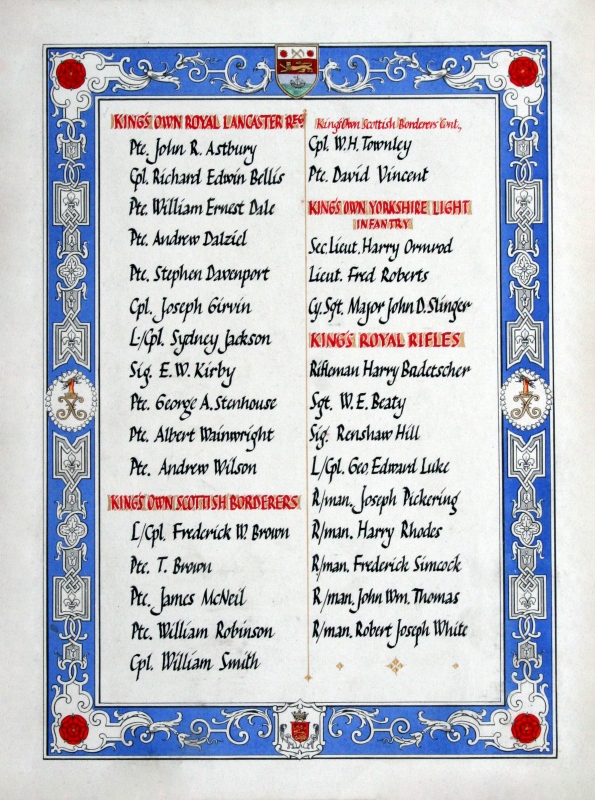 KING'S OWN ROYAL LANCASTER REG
Ptc. John R. Astbury
Cpl. Richard Edwin Bellis
Ptc. William Ernest Dale
Ptc. Andrew Dalziel
Ptc. Stephen Davenport
Cpl. Joseph Girvin
L/Cpl. Sydney Jackson
Sig. E. W. Kirby
Ptc. George A. Stenhouse
Ptc. Albert Wainwright
Ptc. Andrew Wilson
KING'S OWN SCOTTISH BORDERERS
L/Cpl. Frederick W. Brown
Ptc. T. Brown
Ptc. James McNeil
Ptc. William Robinson
Cpl. William Smith
King's Own Scottish Borderers Cont.,
Cpl. W. H. Townley
Ptc. David Vincent
KING'S OWN YORKSHIRE LIGHT
INFANTRY
Sec. Lieut. Harry Ormrod
Lieut. Fred Roberts
Cy. Sgt. Major John D. Slinger
KING'S ROYAL RIFLES
Rifleman Harry Badetscher
Sgt. W. E. Beaty
Sig. Renshaw Hill
L/Cpl. Geo. Edward Luke
R/man. Joseph Pickering
R/man. Harry Rhodes
R/man. Frederick Simcock
R/man. John Wm. Thomas
R/man. Robert Joseph White